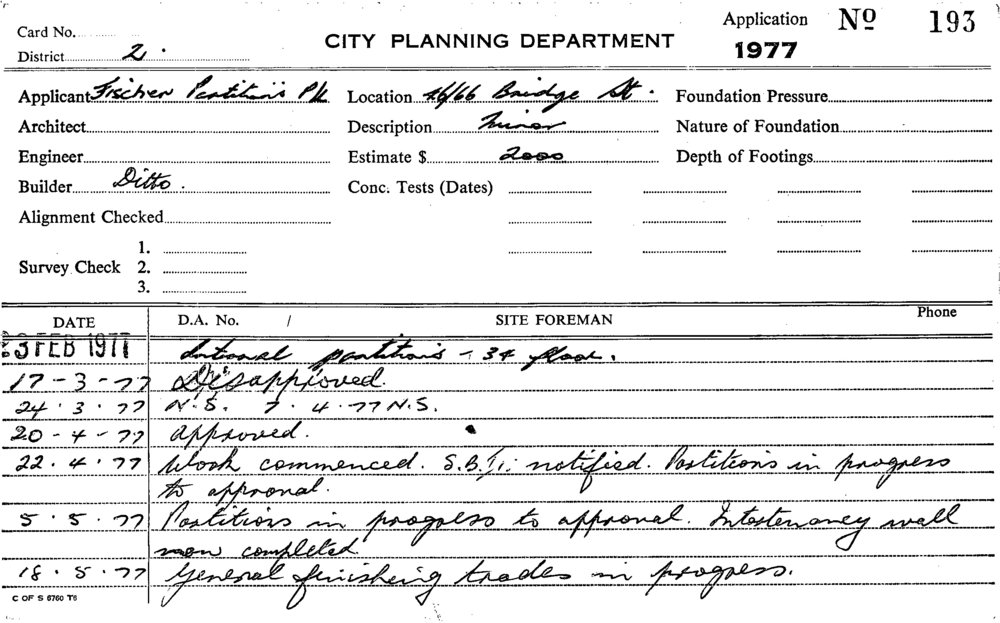 Card No.
District 2.
CITY PLANNING DEPARTMENT
Application No 193
1977
Applicant Fischer Partitions P/L
Location 46/66 Bridge St.
Foundation Pressure
Architect
Description Minor
Nature of Foundation
Engineer
Estimate $ 2000
Depth of Footings
Builder Ditto.
Conc. Tests (Dates)
Alignment Checked
Survey Check
1.
2.
3.
DATE D.A. No. / SITE FOREMAN Phone
3 FEB 1977 Internal partitions - 34 floor.
17-3-77 Disapproved.
24.3.77 N.S. 7.4.77 N.S.
20-4-77 Approved.
22.4.77 Work commenced. S.B.I. notified. Partitions in progress
to approval.
5.5.77 Partitions in progress to approval. Intertenancy wall
now completed
18.5.77 General finishing trades in progress.
C OF S 6760 T6